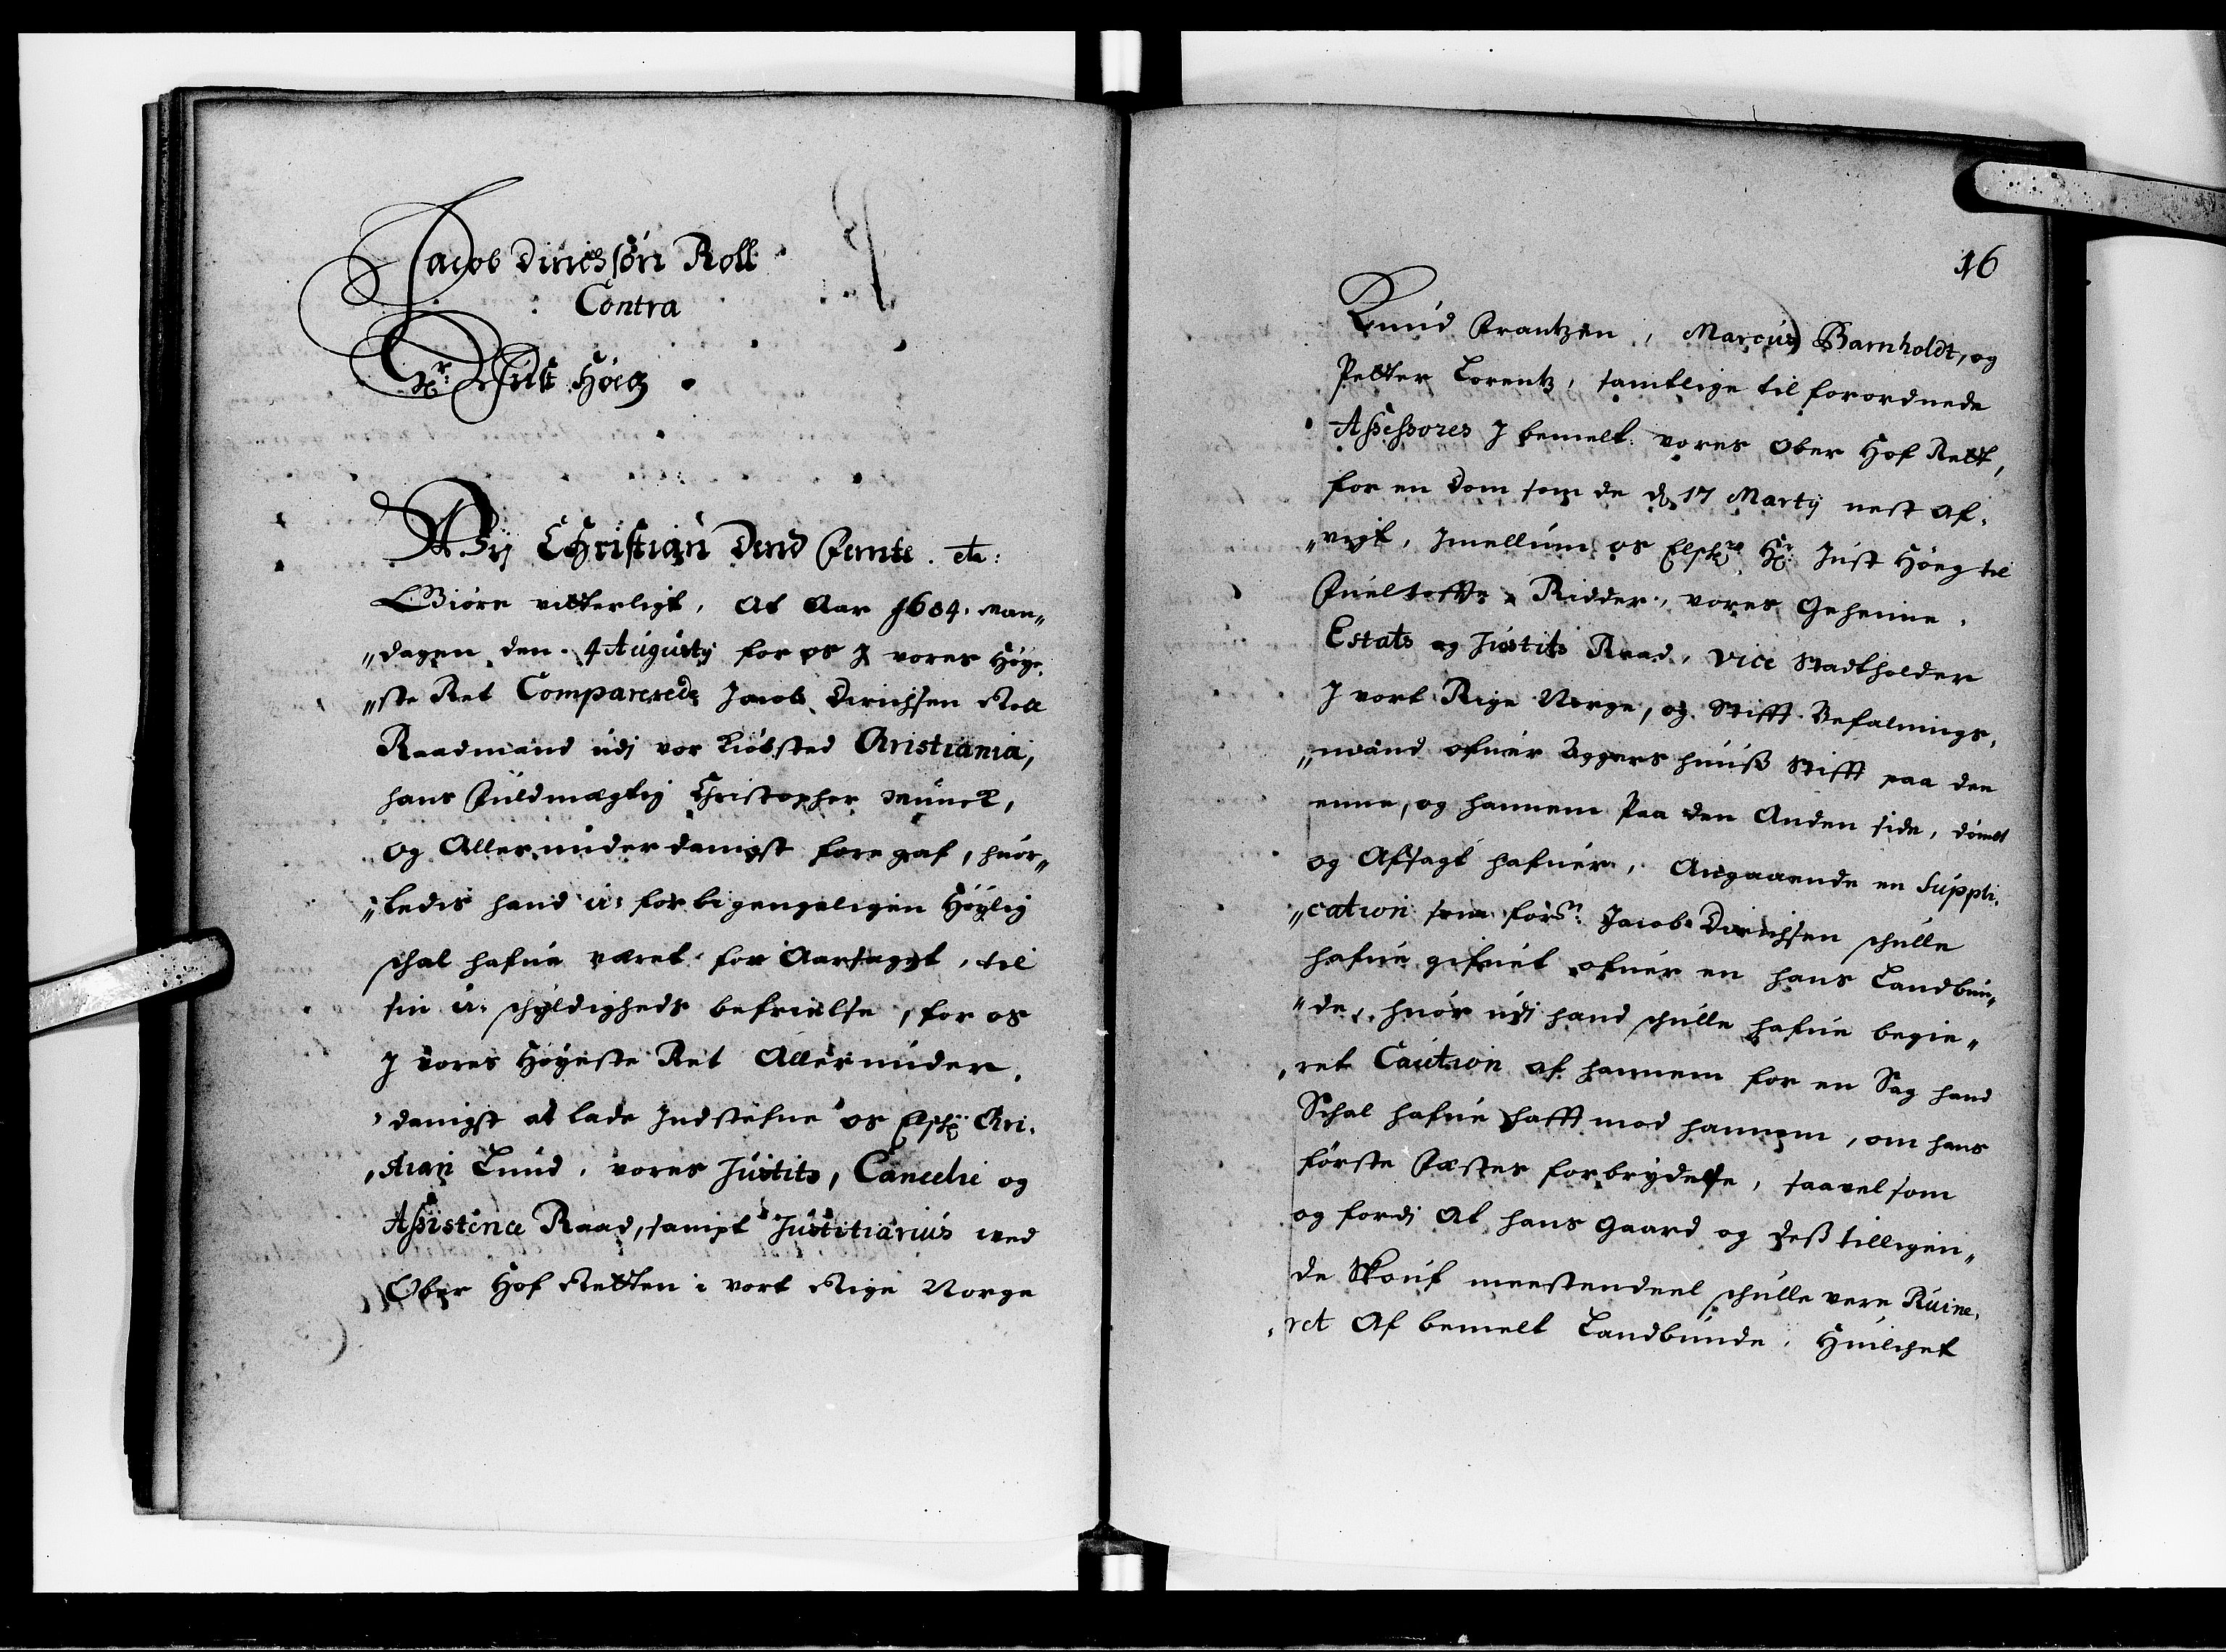 Jacob Dirichsøn Roll
Contra
Hr: Just Høeg
Wij Christian Dend Femte. etc:
Giøre vitterligt, At Aar 1684. Man„
„dagen den 4 Augusty for os J vores Høye„
„ste Ret Comparerede Jacob Dirichsen Roll
Raadmand udj vor Kiøbsted Christiania,
hans Fuldmægtig Christopher Munck,
og Allerunderdanigst foregaf, huor„
„ledis hand u: forbigengeligen Høylig
schal hafue været for Aarsaget, til
sin u: schyldigheds befrielse, for os
J vores Høyeste Ret Allerunder„
danigst at lade Jndstefne os Elsche Chri„
„stian Lund, vores Justits, Cancelie og
Assistence Raad, sampt Justitiarius ved
Ober Hof Retten i vort Rige Norge
16
Knud Frantzen, Marcus Barnholdt, og
Petter Lorentz, samtlige til forordnede
Assessores J bemelt: vores Ober Hof Rett,
for en Dom som de d. 17 Marty nest af„
„vigt, Jmellum os Elsche Hr: Just Høeg til
Fueltofte, Ridder, vores Geheime,
Estats og Justits Raad, Vice Stadtholder
J vort Rige Norge, og Stifft Befalnings„
„mand ofuer Aggershuuss Stifft paa den
enne, og hannem Paa den Anden side, dømt
og Afsagt hafuer, Angaaende en Suppli„
„cation som forsn: Jacob Dirichsen schulle
hafue gifuet ofuer en hans Landbun„
„de, huor udj hand schulle hafue begie„
„ret Caution af hannem for en Sag hand
Schal hafue hafft mod hannem, om hans
første Fæstes forbrydelse, saavelsom
og fordj At hans Gaard og dess tilligen„
de Skouf meestendeel schulle vere Ruine„
„ret Af bemelt Landbunde, Huilchet